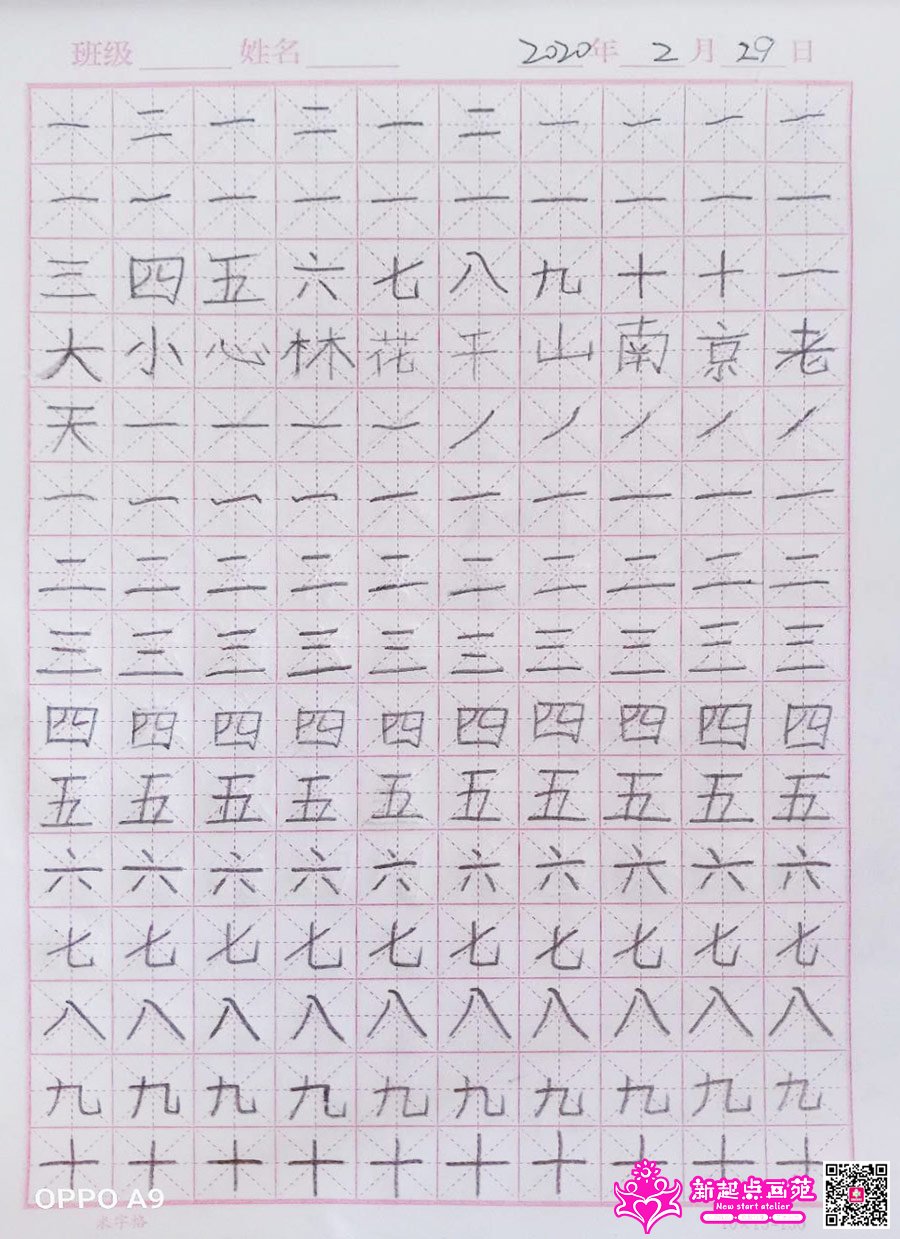 班级 姓名 2020年 2月 29日
一 二 一 二 一 二 一 一 一 一
一 一 一 一 一 一 一 一 一 一
三 四 五 六 七 八 九 十 十 一
大 小 心 林 花 千 山 南 京 老
天 一 一 一 一 ノ ノ ノ ノ ノ
一 一 一 一 一 一 一 一 一 一
二 二 二 二 二 二 二 二 二 二
三 三 三 三 三 三 三 三 三 三
四 四 四 四 四 四 四 四 四 四
五 五 五 五 五 五 五 五 五 五
六 六 六 六 六 六 六 六 六 六
七 七 七 七 七 七 七 七 七 七
八 八 八 八 八 八 八 八 八 八
九 九 九 九 九 九 九 九 九 九
十 十 十 十 十 十 十 十 十 十
OPPO A9
米字格
新起点画苑
New start atelier